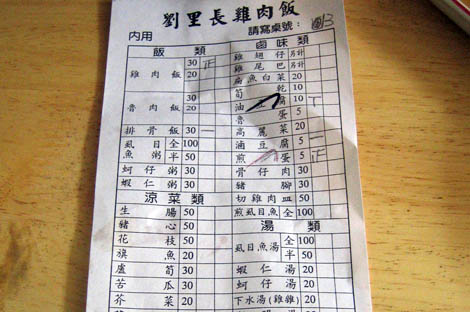 劉里長雞肉飯
內用
請寫桌號:
飯 類
雞肉飯 30 正
20
魯肉飯 30
20
排骨飯 30 一
虱目魚粥 全 100
半 50
蚵仔粥 30
蝦仁粥 30
涼菜類
生腸 50
豬心 50
花枝 50
旗魚 20
蘆筍 30
苦瓜 30
芥菜 20
鹵味類
雞翅仔 另計
雞尾巴 另計
扁魚白菜 20
筍乾 10
油豆腐 10
魯蛋 5
高麗菜 20
滷豆腐 5 一
煎蛋 5 正
骨仔肉 30
豬腳 30
切雞肉皿 50
煎虱目魚 全 100
湯 類
虱目魚湯 全 100
半 50
蝦仁湯 20
蚵仔湯 20
下水湯(雞雜) 20